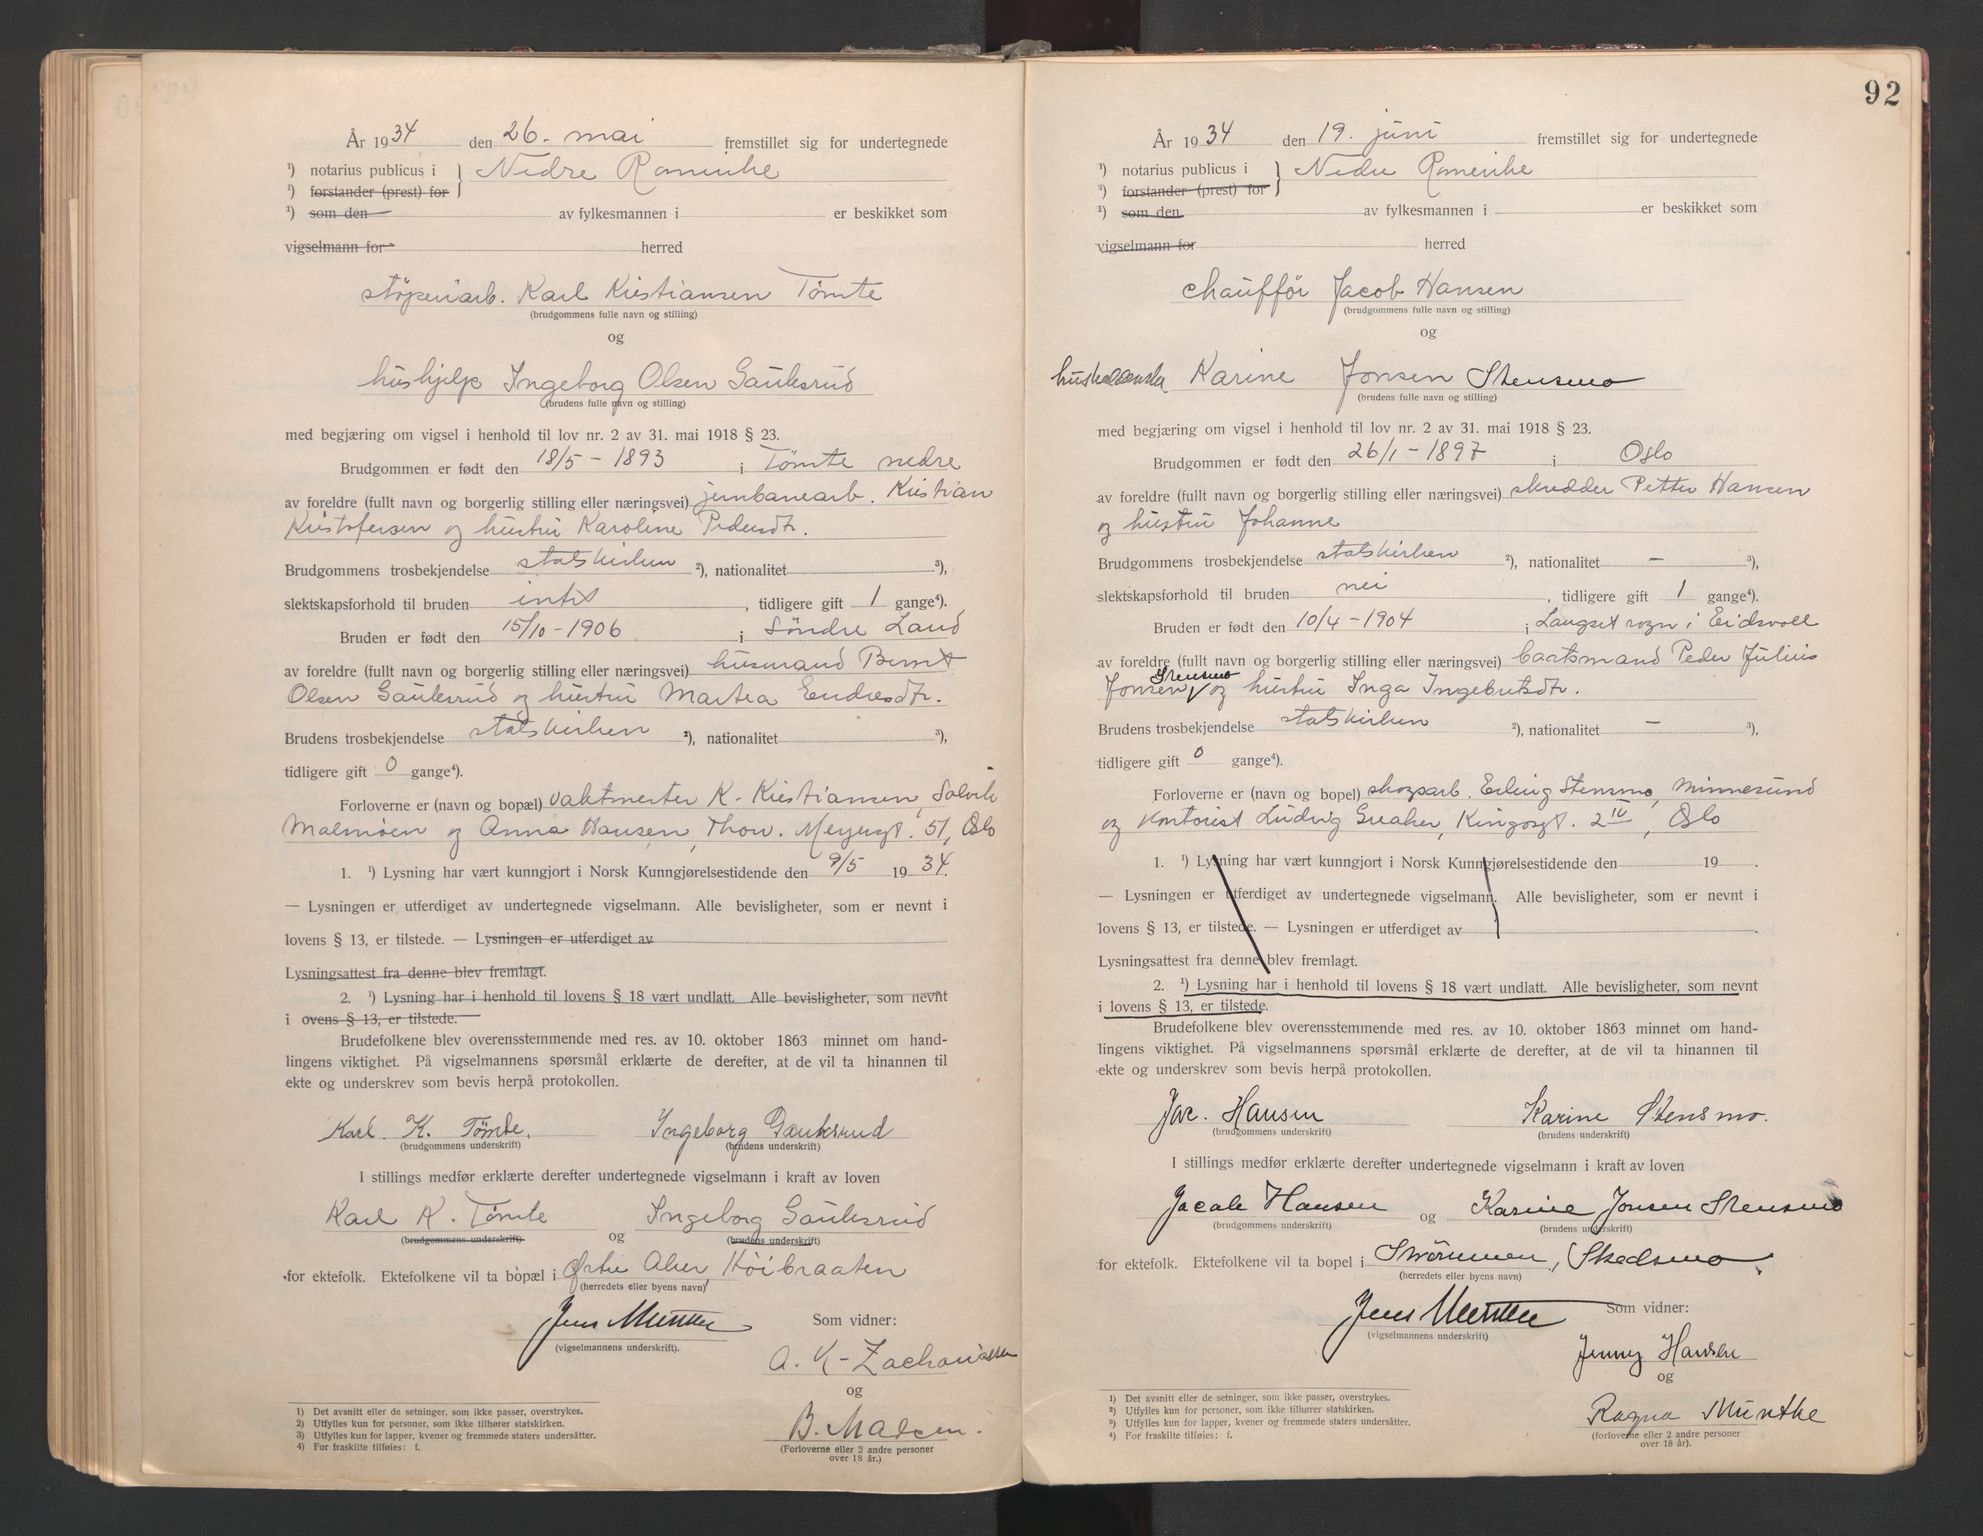 År 1934 den 26. mai fremstillet sig for undertegnede
¹) notarius publicus i } Nedre Romerike
¹) forstander (prest) for
¹) som den av fylkesmannen i er beskikket som
vigselmann for herred
støperiarb. Karl Kristiansen Tømte
(brudgommens fulle navn og stilling)
og
hushjelp Ingeborg Olsen Gauksrud
(brudens fulle navn og stilling)
med begjæring om vigsel i henhold til lov nr. 2 av 31. mai 1918 § 23.
Brudgommen er født den 18/5 - 1893 i Tømte nedre
av foreldre (fullt navn og borgerlig stilling eller næringsvei) jernbanearb. Kristian
Kristofersen og hustru Karoline Pedersdtr.
Brudgommens trosbekjendelse statskirken ²), nationalitet ³),
slektskapsforhold til bruden intet, tidligere gift 1 gange⁴).
Bruden er født den 15/10 - 1906 i Søndre Land
av foreldre (fullt navn og borgerlig stilling eller næringsvei) husmand Bernt
Olsen Gauksrud og hustru Martea Endresdtr.
Brudens trosbekjendelse statskirken ²), nationalitet ³),
tidligere gift 0 gange⁴).
Forloverne er (navn og bopæl) vaktmester K. Kristiansen, Solvik
Malmøen og Anna Hansen, Thorv. Meyersgt. 51, Oslo
1. ¹) Lysning har vært kunngjort i Norsk Kunngjørelsestidende den 9/5 1934.
— Lysningen er utferdiget av undertegnede vigselmann. Alle bevisligheter, som er nevnt i
lovens § 13, er tilstede. — Lysningen er utferdiget av
Lysningsattest fra denne blev fremlagt.
2. ¹) Lysning har i henhold til lovens § 18 vært undlatt. Alle bevisligheter, som nevnt
i ovens § 13, er tilstede.
Brudefolkene blev overensstemmende med res. av 10. oktober 1863 minnet om hand-
lingens viktighet. På vigselmannens spørsmål erklærte de derefter, at de vil ta hinannen til
ekte og underskrev som bevis herpå protokollen.
Karl. K. Tømte. Ingeborg Gauksrud
(brudgommens underskrift) (brudens underskrift)
I stillings medfør erklærte derefter undertegnede vigselmann i kraft av loven
Karl K. Tømte og Ingeborg Gauksrud
(brudgommens underskrift) (brudens underskrift)
for ektefolk. Ektefolkene vil ta bopæl i Østre Aker, Høibraaten
(herredets eller byens navn)
Jens Munthe Som vidner:
(vigselmannens underskrift).
A. K. Zachariassen
og
B. Madsen.
(Forloverne eller 2 andre personer
over 18 år.)
1) Det avsnitt eller de setninger, som ikke passer, overstrykes.
2) Utfylles kun for personer, som ikke tilhører statskirken.
3) Utfylles kun for lapper, kvener og fremmede staters undersåtter.
4) For fraskilte tilføies: f.
92
År 1934 den 19. juni fremstillet sig for undertegnede
¹) notarius publicus i } Nedre Romerike
¹) forstander (prest) for
¹) som den av fylkesmannen i er beskikket som
vigselmann for herred
chauffør Jacob Hansen
(brudgommens fulle navn og stilling)
og
husholderske Karine Jonsen Stensmo
(brudens fulle navn og stilling)
med begjæring om vigsel i henhold til lov nr. 2 av 31. mai 1918 § 23.
Brudgommen er født den 26/1 - 1897 i Oslo
av foreldre (fullt navn og borgerlig stilling eller næringsvei) skredder Petter Hansen
og hustru Johanne
Brudgommens trosbekjendelse statskirken ²), nationalitet - ³),
slektskapsforhold til bruden nei, tidligere gift 1 gange⁴).
Bruden er født den 10/4 - 1904 i Langset sogn i Eidsvoll
av foreldre (fullt navn og borgerlig stilling eller næringsvei) baatsmand Peder Julius
Jonsen Stensmo og hustru Inga Ingebretsdtr.
Brudens trosbekjendelse statskirken ²), nationalitet - ³),
tidligere gift 0 gange⁴).
Forloverne er (navn og bopel) skogsarb. Erling Stensmo, Minnesund
og kontorist Ludvig Greaker, Kingosgt. 2 IV, Oslo
1. ¹) Lysning har vært kunngjort i Norsk Kunngjørelsestidende den 19 .
— Lysningen er utferdiget av undertegnede vigselmann. Alle bevisligheter, som er nevnt i
lovens § 13, er tilstede. — Lysningen er utferdiget av
Lysningsattest fra denne blev fremlagt.
2. ¹) Lysning har i henhold til lovens § 18 vært undlatt. Alle bevisligheter, som nevnt
i lovens § 13, er tilstede.
Brudefolkene blev overensstemmende med res. av 10. oktober 1863 minnet om hand-
lingens viktighet. På vigselmannens spørsmål erklærte de derefter, at de vil ta hinannen til
ekte og underskrev som bevis herpå protokollen.
Jac. Hansen Karine Stensmo.
(brudgommens underskrift) (brudens underskrift)
I stillings medfør erklærte derefter undertegnede vigselmann i kraft av loven
Jacob Hansen og Karine Jonsen Stensmo
(brudgommens underskrift) (brudens underskrift)
for ektefolk. Ektefolkene vil ta bopel i Strømmen, Skedsmo.
(herredets eller byens navn)
Jens Munthe Som vidner:
(vigselmannens underskrift)
Jenny Hansen
og
Ragna Munthe
(forloverne eller 2 andre personer
over 18 år).
1) Det avsnitt eller de setninger, som ikke passer, overstrykes.
2) Utfylles kun for personer, som ikke tilhører statskirken.
3) Utfylles kun for lapper, kvener og fremmede staters undersåtter.
4) For fraskilte tilføies: f.